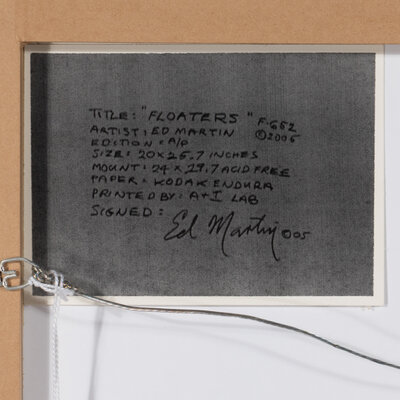 TITLE: "FLOATERS" F-652
ARTIST: ED MARTIN ©2005
EDITION: A/P
SIZE: 20x25.7 INCHES
MOUNT: 24 x 29.7 ACID FREE
PAPER: KODAK ENDURA
PRINTED BY: A+I LAB
SIGNED:
Ed Martin 005